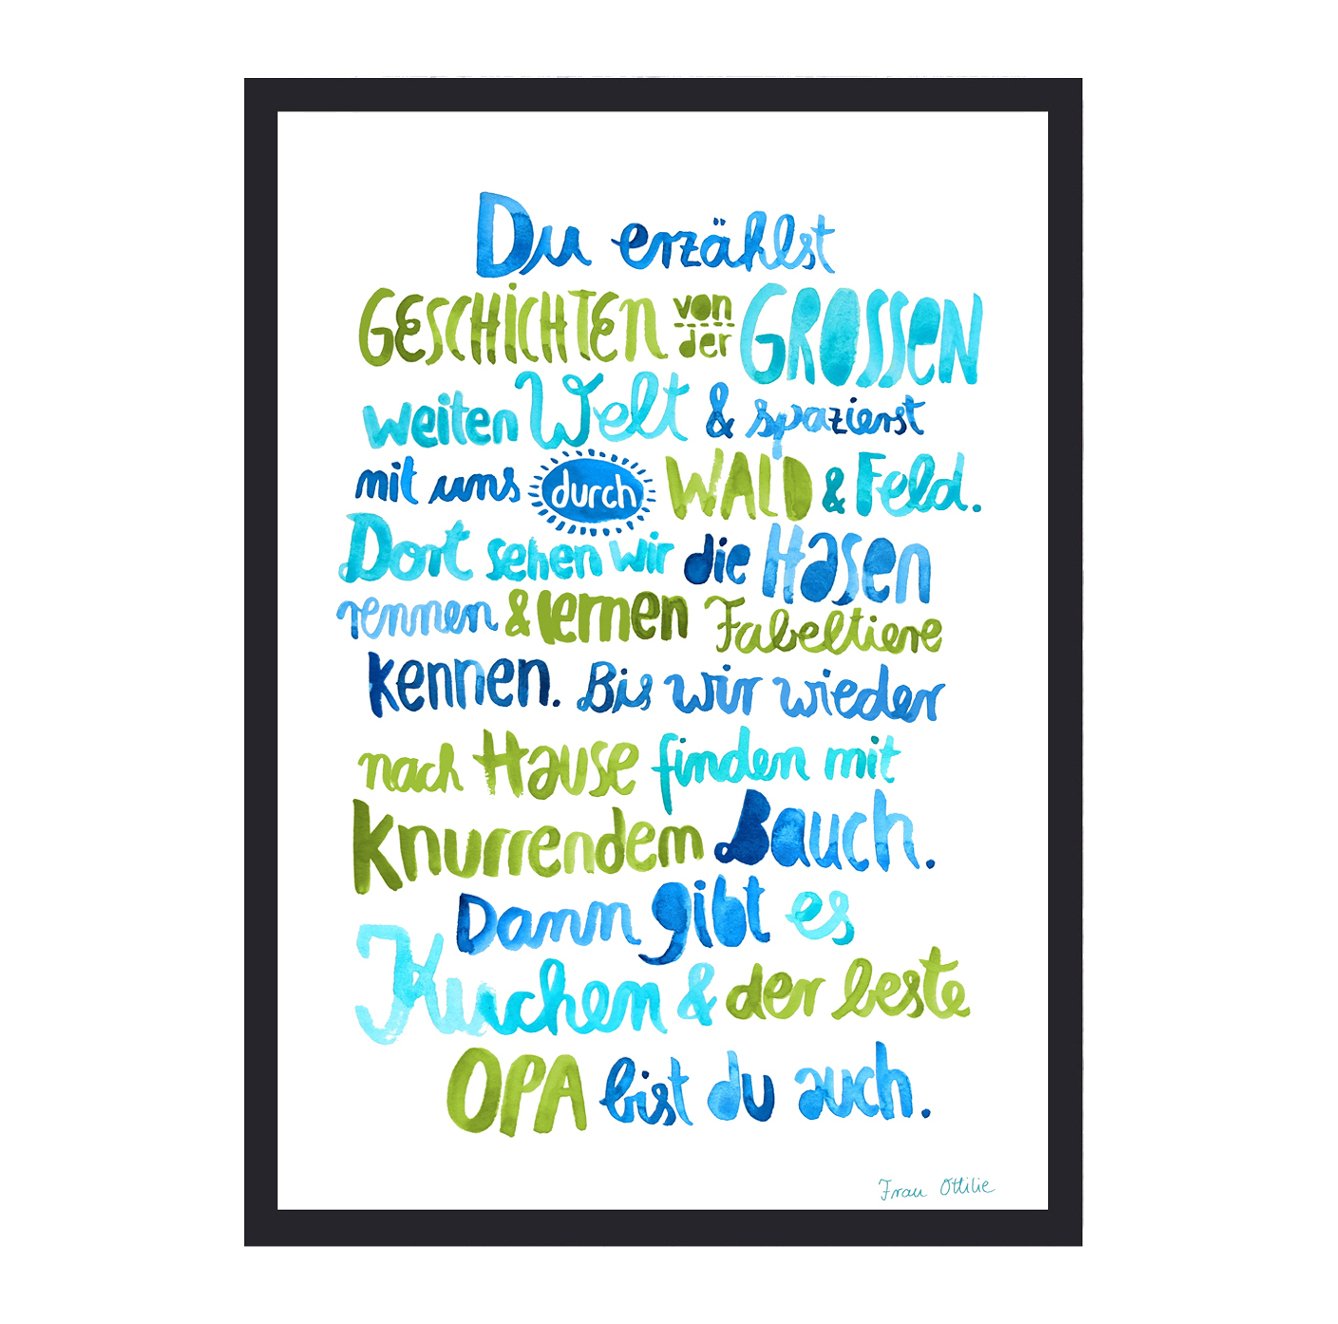 Du erzählst
GESCHICHTEN von der GROSSEN
weiten Welt & spazierst
mit uns durch WALD & Feld.
Dort sehen wir die Hasen
rennen & lernen Fabeltiere
kennen. Bis wir wieder
nach Hause finden mit
Knurrendem Bauch.
Dann gibt es
Kuchen & der beste
OPA bist du auch.
Frau Ottilie